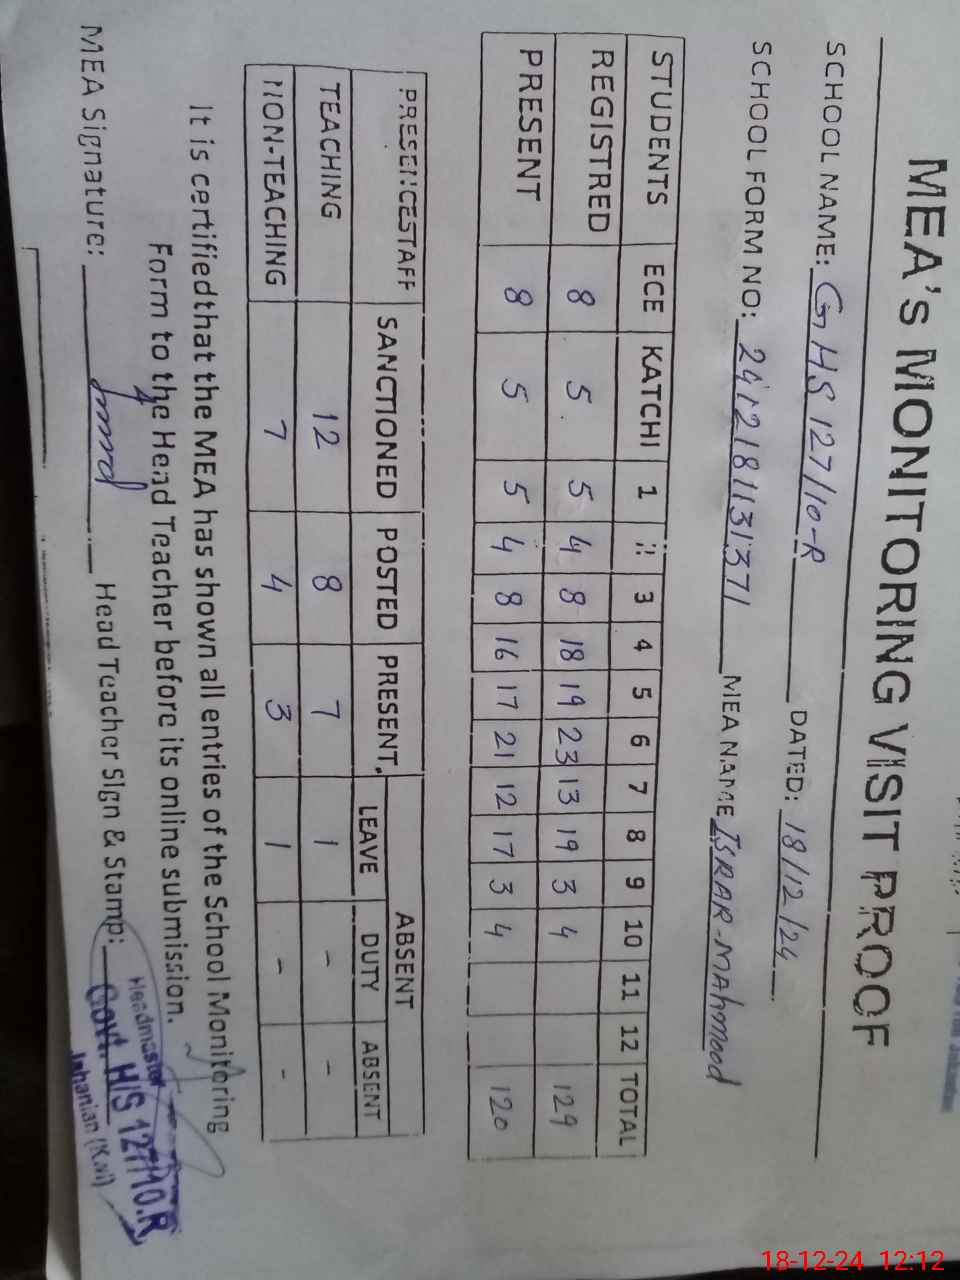 MEA's MONITORING VISIT PROOF
SCHOOL NAME: GHS 127/10-R DATED: 18/12/24
SCHOOL FORM NO: MEA NAME ISRAR-MAhmood
STUDENTS ECE KATCHI 1 3 4 5 6 7 8 9 10 11 12 TOTAL
REGISTRED 8 5 5 4 8 18 19 23 13 19 3 4 129
PRESENT 8 5 5 4 8 16 17 21 12 17 3 4 120
PRESENCESTAFF SANCTIONED POSTED PRESENT ABSENT
LEAVE DUTY ABSENT
TEACHING 12 8 7 1 - -
NON-TEACHING 7 4 3 1 - -
It is certifiedthat the MEA has shown all entries of the School Monitoring
Form to the Head Teacher before its online submission.
MEA Signature: Head Teacher Sign & Stamp:
Headmaster
Govt. H/S 127/10.R
Jahanian (Kwl)
18-12-24 12:12